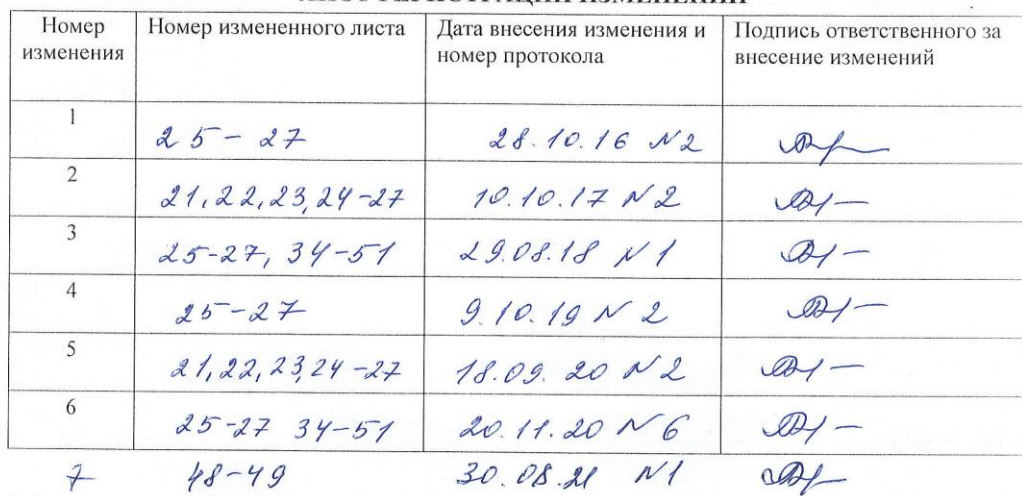 ЛИСТ РЕГИСТРАЦИИ ИЗМЕНЕНИЙ
Номер изменения Номер измененного листа Дата внесения изменения и номер протокола Подпись ответственного за внесение изменений
1 25-27 28.10.16 N2
2 21,22,23,24-27 10.10.17 N2
3 25-27, 34-51 29.08.18 N1
4 25-27 9.10.19 N2
5 21,22,23,24-27 18.09.20 N2
6 25-27 34-51 20.11.20 N6
7 48-49 30.08.21 N1